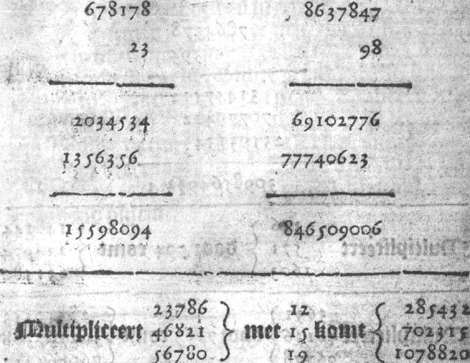 678178 8637847
23 98
2034534 69102776
1356356 77740623
15598094 846509006
23786 12 285432
Multipliceert 46821 } met 15 komt { 702315
56780 19 1078820